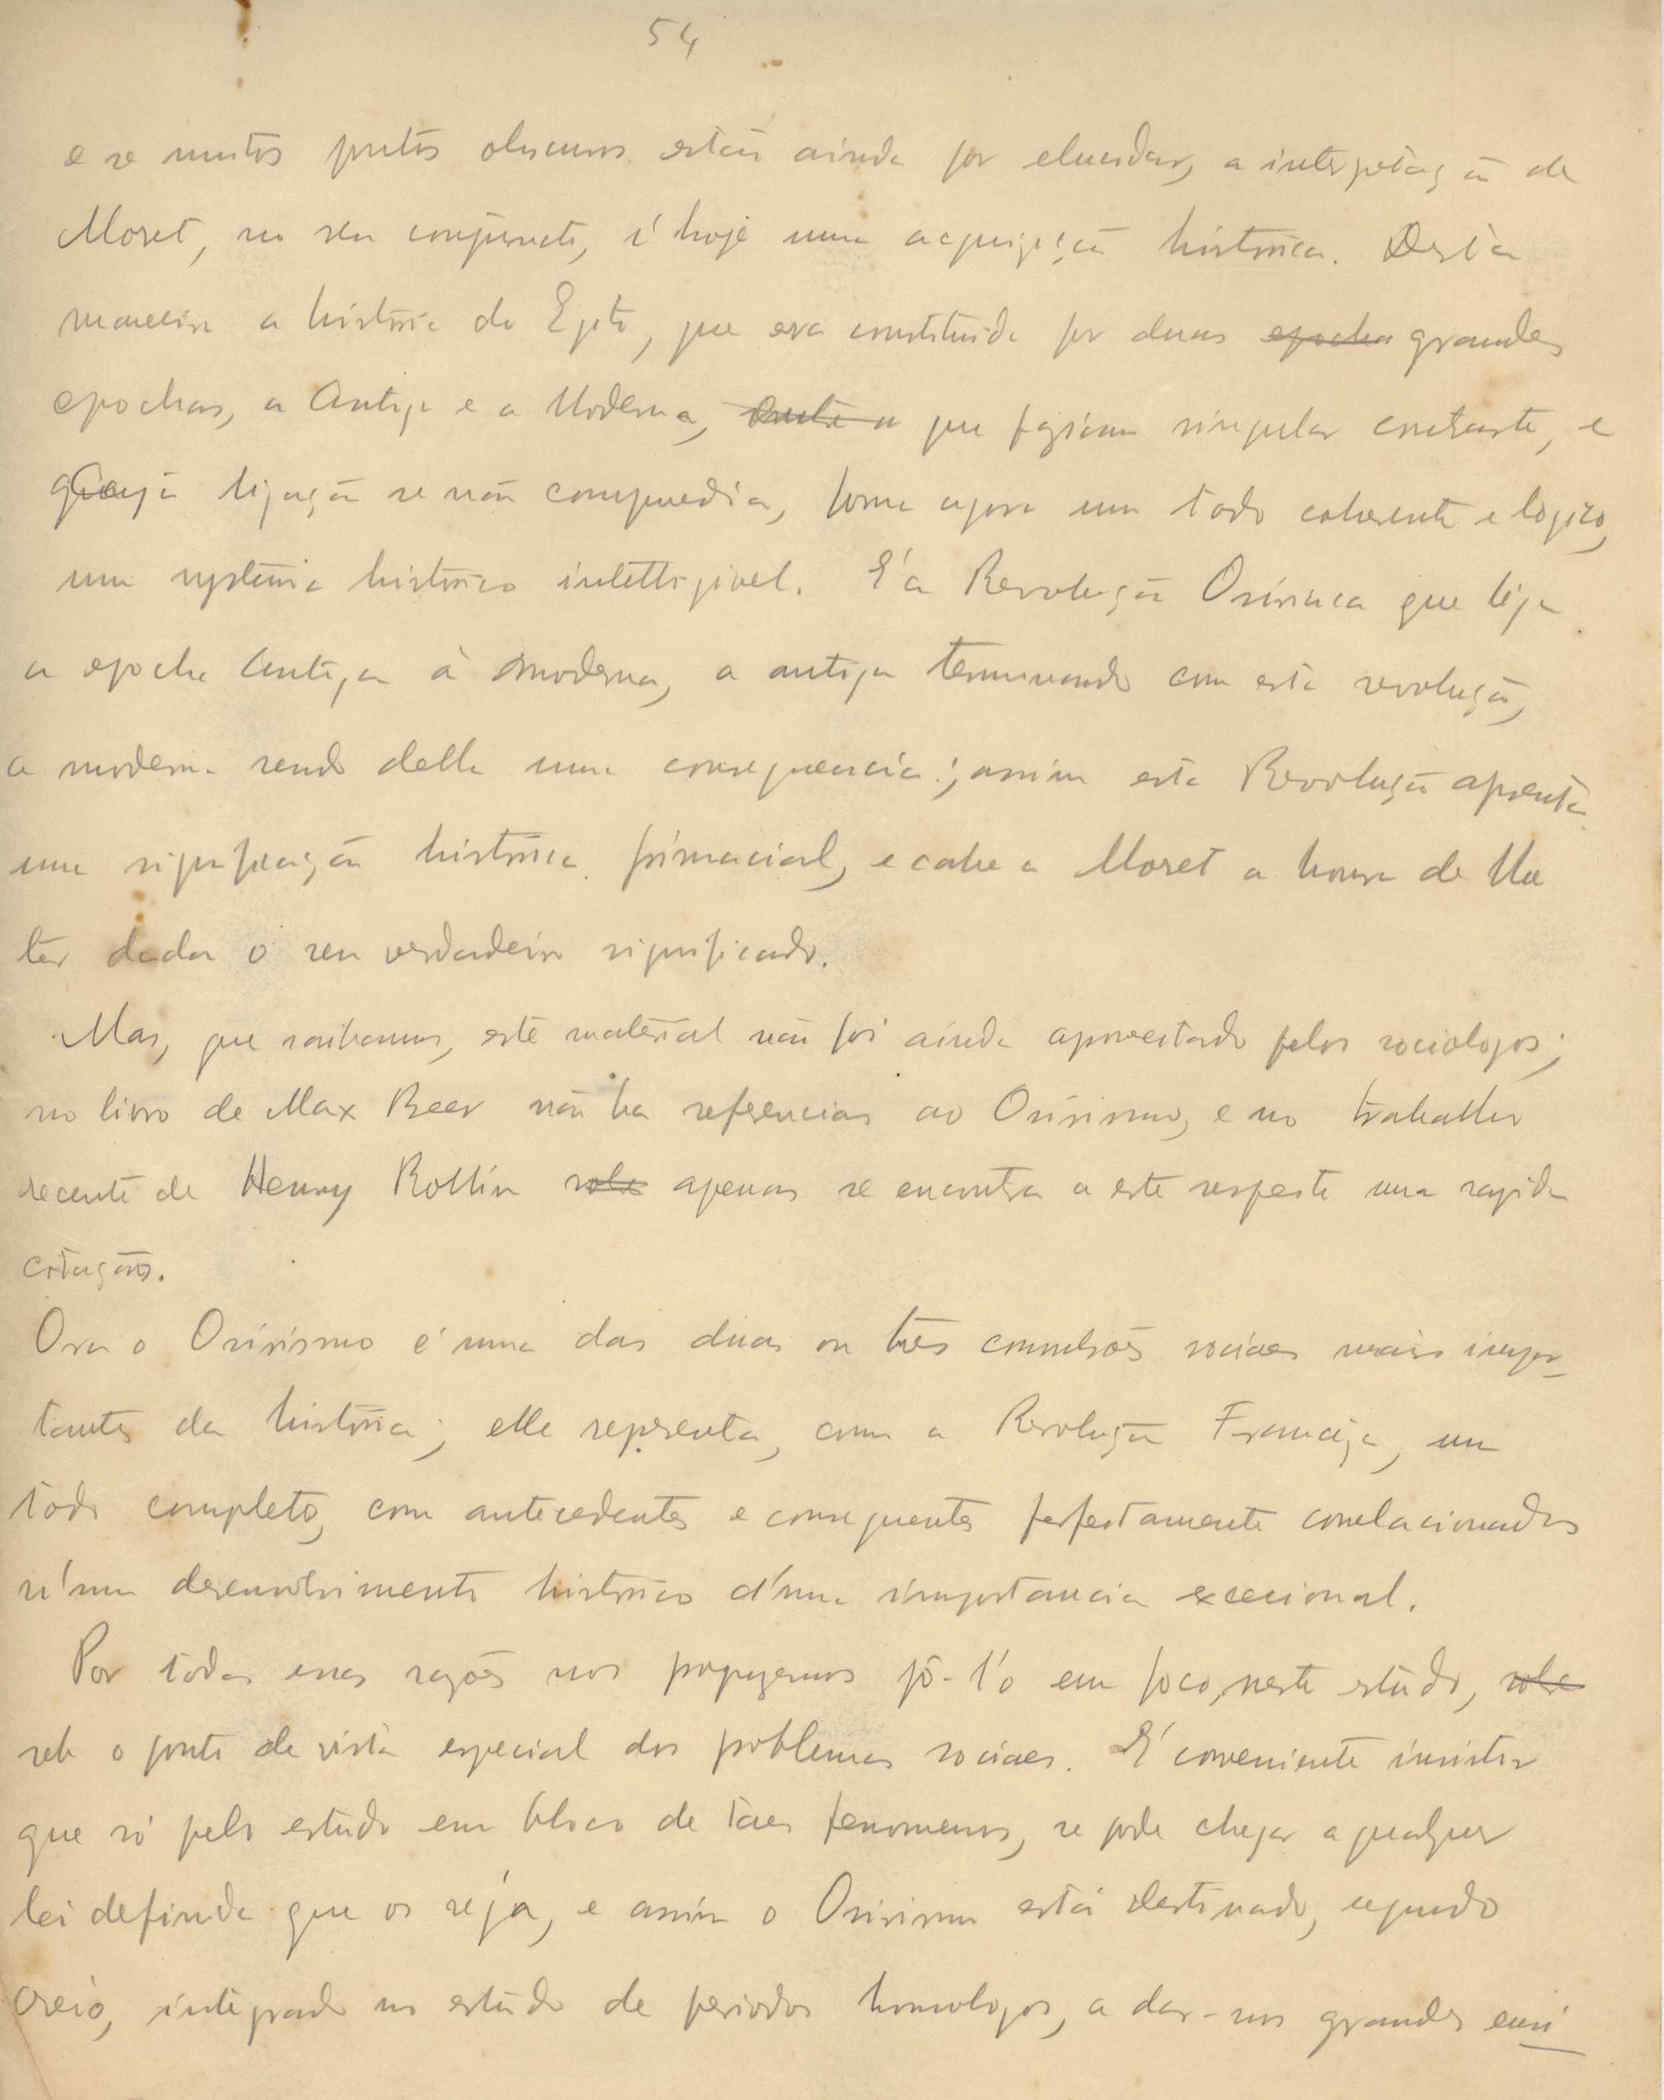 54
e se muitos pontos obscuros estão ainda por elucidar, a interpetação de
Moret, no seu conjuncto, é hoje uma acquisição historica. Desta
maneira a historia do Egito, que era constituida por duas epocha grandes
epochas, a Antiga e a Moderna, que fazíam singular contraste, e
cuja ligação se não comprendia, forma agora um todo coherente e logico,
um systema historico intelligivel. É a Revolução Osiriaca que liga
a epocha Antiga à moderna, a antiga terminando com esta revolução,
a moderna sendo della uma consequencia; assim esta Revolução apresenta
uma significação historica primacial, e cabe a Moret a honra de lhe
ter dado o seu verdadeiro significado.
Mas, que saibamos, este material não foi ainda aproveitado pelos sociologos;
no livro de Max Beer não ha referencias ao Osirismo, e no trabalho
recente de Henry Rollin sobre apenas se encontra a este respeito uma rapida
citação.
Ora o Osirismo é uma das duas ou três convulsões sociaes mais impor-
tantes da historia; elle representa, como a Revolução Franceza, um
todo completo, com antecedentes e consequentes perfeitamente correlacionados
n'um desenvolvimento historico d'uma importancia excecional.
Por todas essas razões nos propuzemos pô-l'o em foco, neste estudo, sobre
sob o ponto de vista especial dos problemas sociaes. É conveniente insistir
que só pelo estudo em bloco de taes fenomenos, se pode chegar a qualquer
lei definida que os reja, e assim o Osirismo está destinado, segundo
creio, integrado no estudo de periodos homologos, a dar-nos grandes ensi